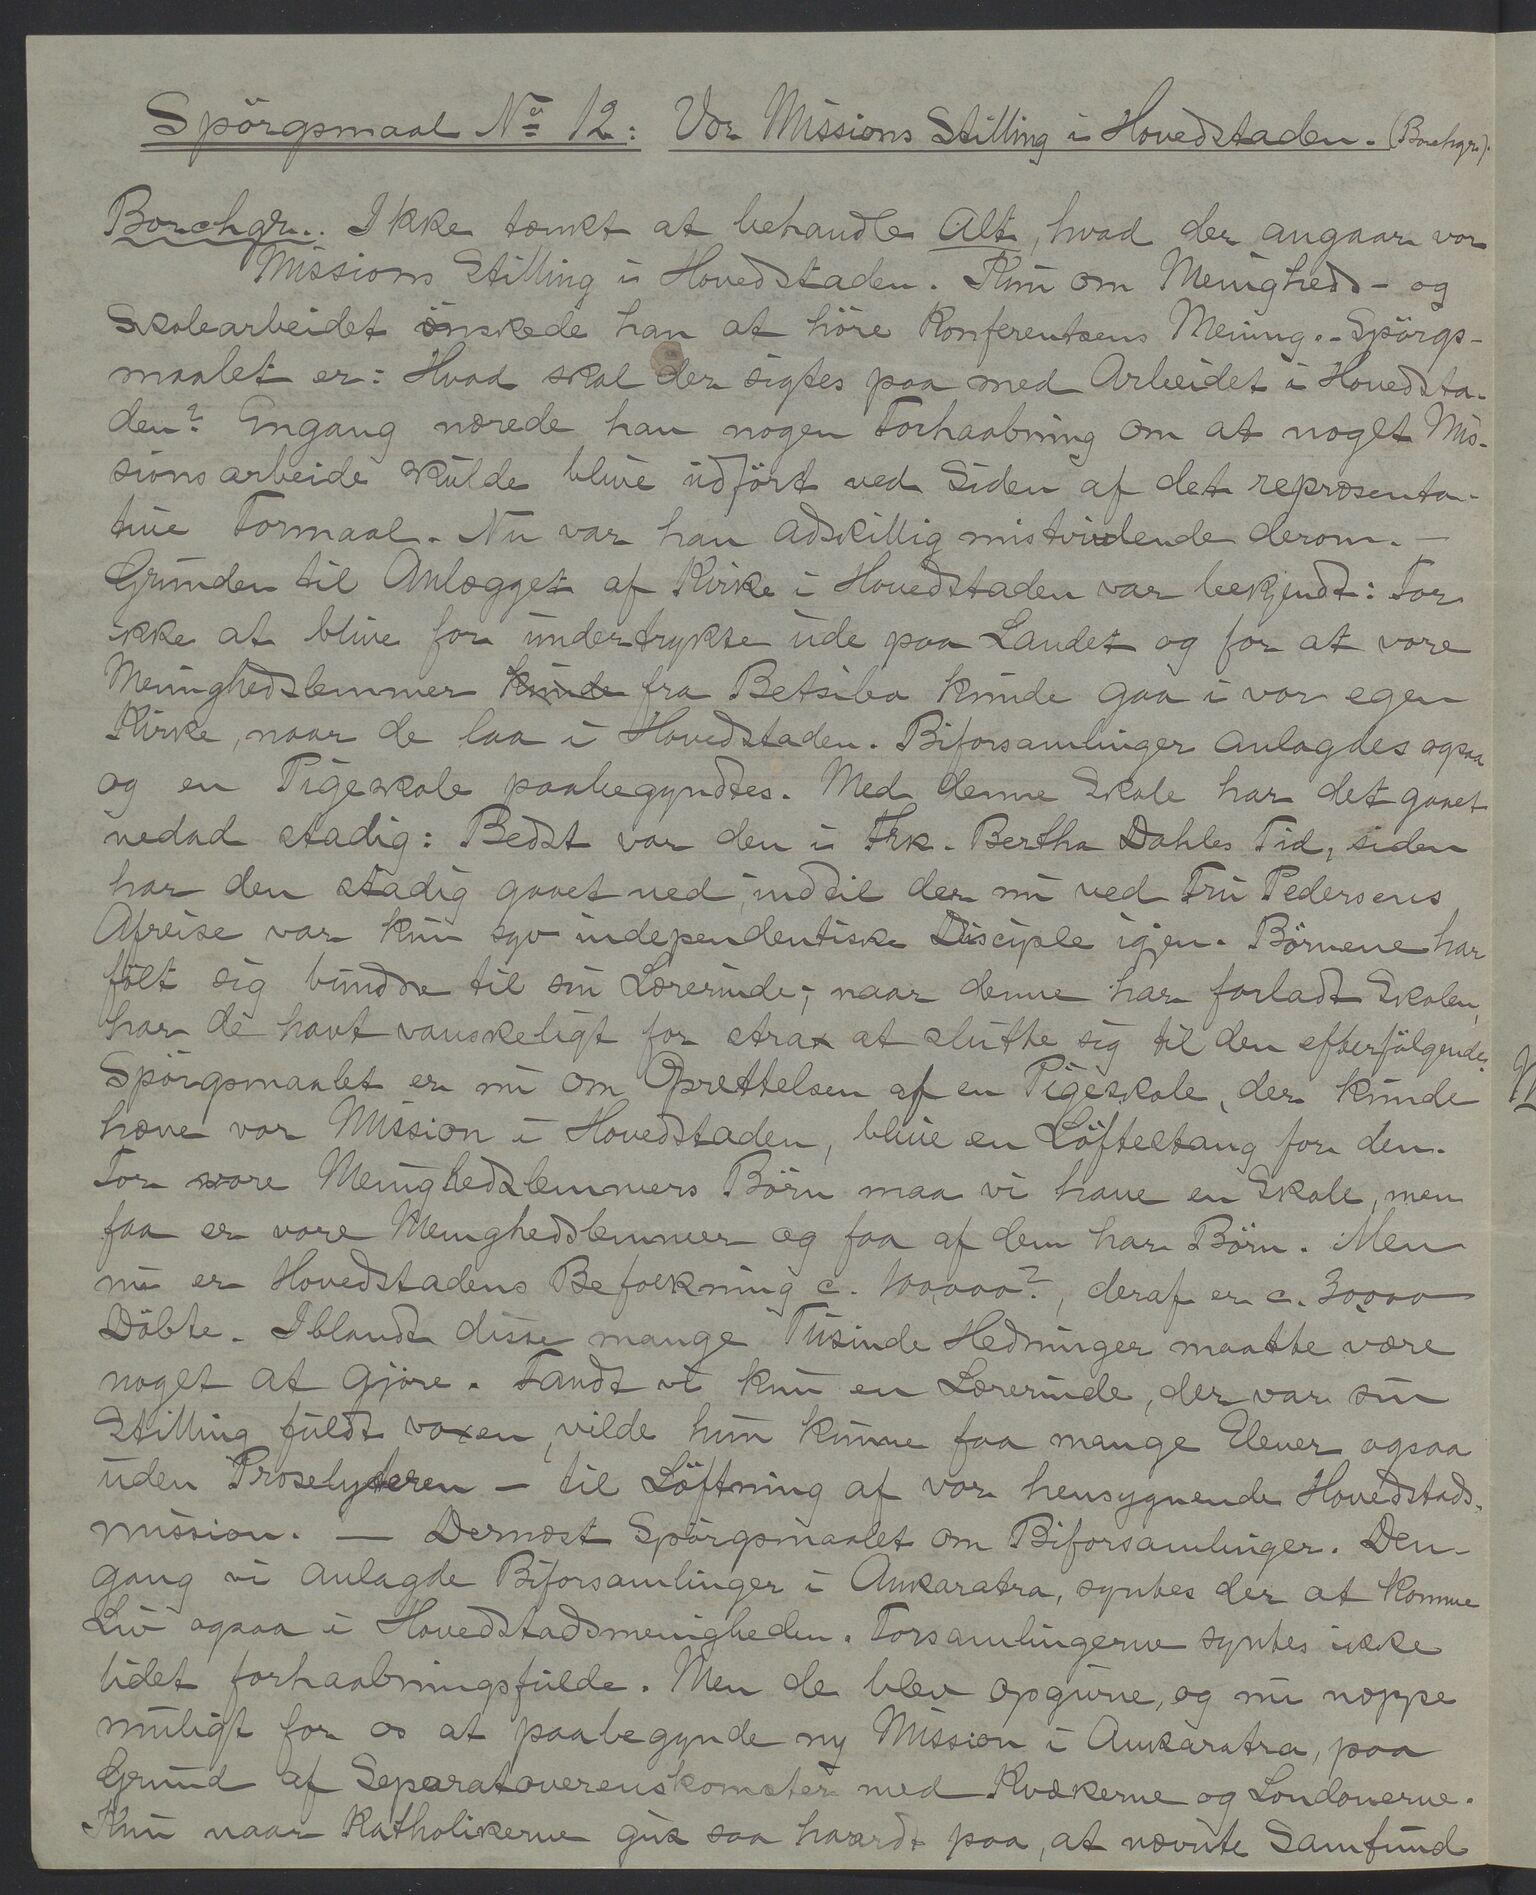 Spörgsmaal No 12: Vor Missions Stilling i Hovedstaden. (Borchgr.).
Borchgr.: Ikke tænkt at behandle Alt, hvad der angaar vor
Missions Stilling i Hovedstaden. Kun om Menigheds- og
Skolearbeidet önskede han at höre Konferentsens Mening. - Spörgs-
maalet er: Hvad skal der sigtes paa med Arbeidet i Hovedsta-
den? Engang nærede han nogen Forhaabning om at noget Mis-
sionsarbeide skulde blive udfört ved Siden af det repræsenta-
tive Formaal. Nu var han adskillig mistvivlende derom. -
Grunden til Anlægget af Kirke i Hovedstaden var bekjendt: For
ikke at blive for undertrykte ude paa Landet og for at vore
Menighedslemmer kunde fra Betsileo kunde gaa i vor egen
Kirke, naar de laa i Hovedstaden. Biforsamlinger anlagdes ogsaa
og en Pigeskole paabegyndtes. Med denne Skole har det gaaet
nedad stadig: Bedst var den i Frk. Bertha Dahles Tid, siden
har den stadig gaaet ned indtil der nu ved Fru Pedersens
Afreise var kun syv independentiske Disciple igjen. Börnene har
fölt sig bundne til sin Lærerinde; naar denne har forladt Skolen,
har de havt vanskeligt for strax at slutte sig til den efterfölgende.
Spörgsmaalet er nu om Oprettelsen af en Pigeskole, der kunde
hæve vor Mission i Hovedstaden, blive en Löftestang for den.
For vore Menighedslemmers Börn maa vi have en Skole, men
faa er vore Menighedslemmer og faa af dem har Börn. Men
nu er Hovedstadens Befolkning c. 100,000?, deraf er c. 30,000
Döbte. Iblandt disse mange Tusinde Hedninger maatte være
noget at gjöre. Fandt vi kun en Lærerinde, der var sin
Stilling fuldt voxen, vilde hun kunne faa mange Elever ogsaa
uden Proselyteren - til Löftning af vor hensygnende Hovedstads-
mission. - Dernæst Spörgsmaalet om Biforsamlinger. Den-
gang vi anlagde Biforsamlinger i Ankaratra, syntes der at komme
Liv ogsaa i Hovedstadsmenigheden. Forsamlingerne syntes ikke
lidet forhaabningsfulde. Men de blev opgivne, og nu næppe
muligt for os at paabegynde ny Mission i Ankaratra, paa
Grund af Separatoverenskomster med Kvækerne og Londonerne.
Kun naar Katholikerne gik saa haardt paa, at nævnte Samfund